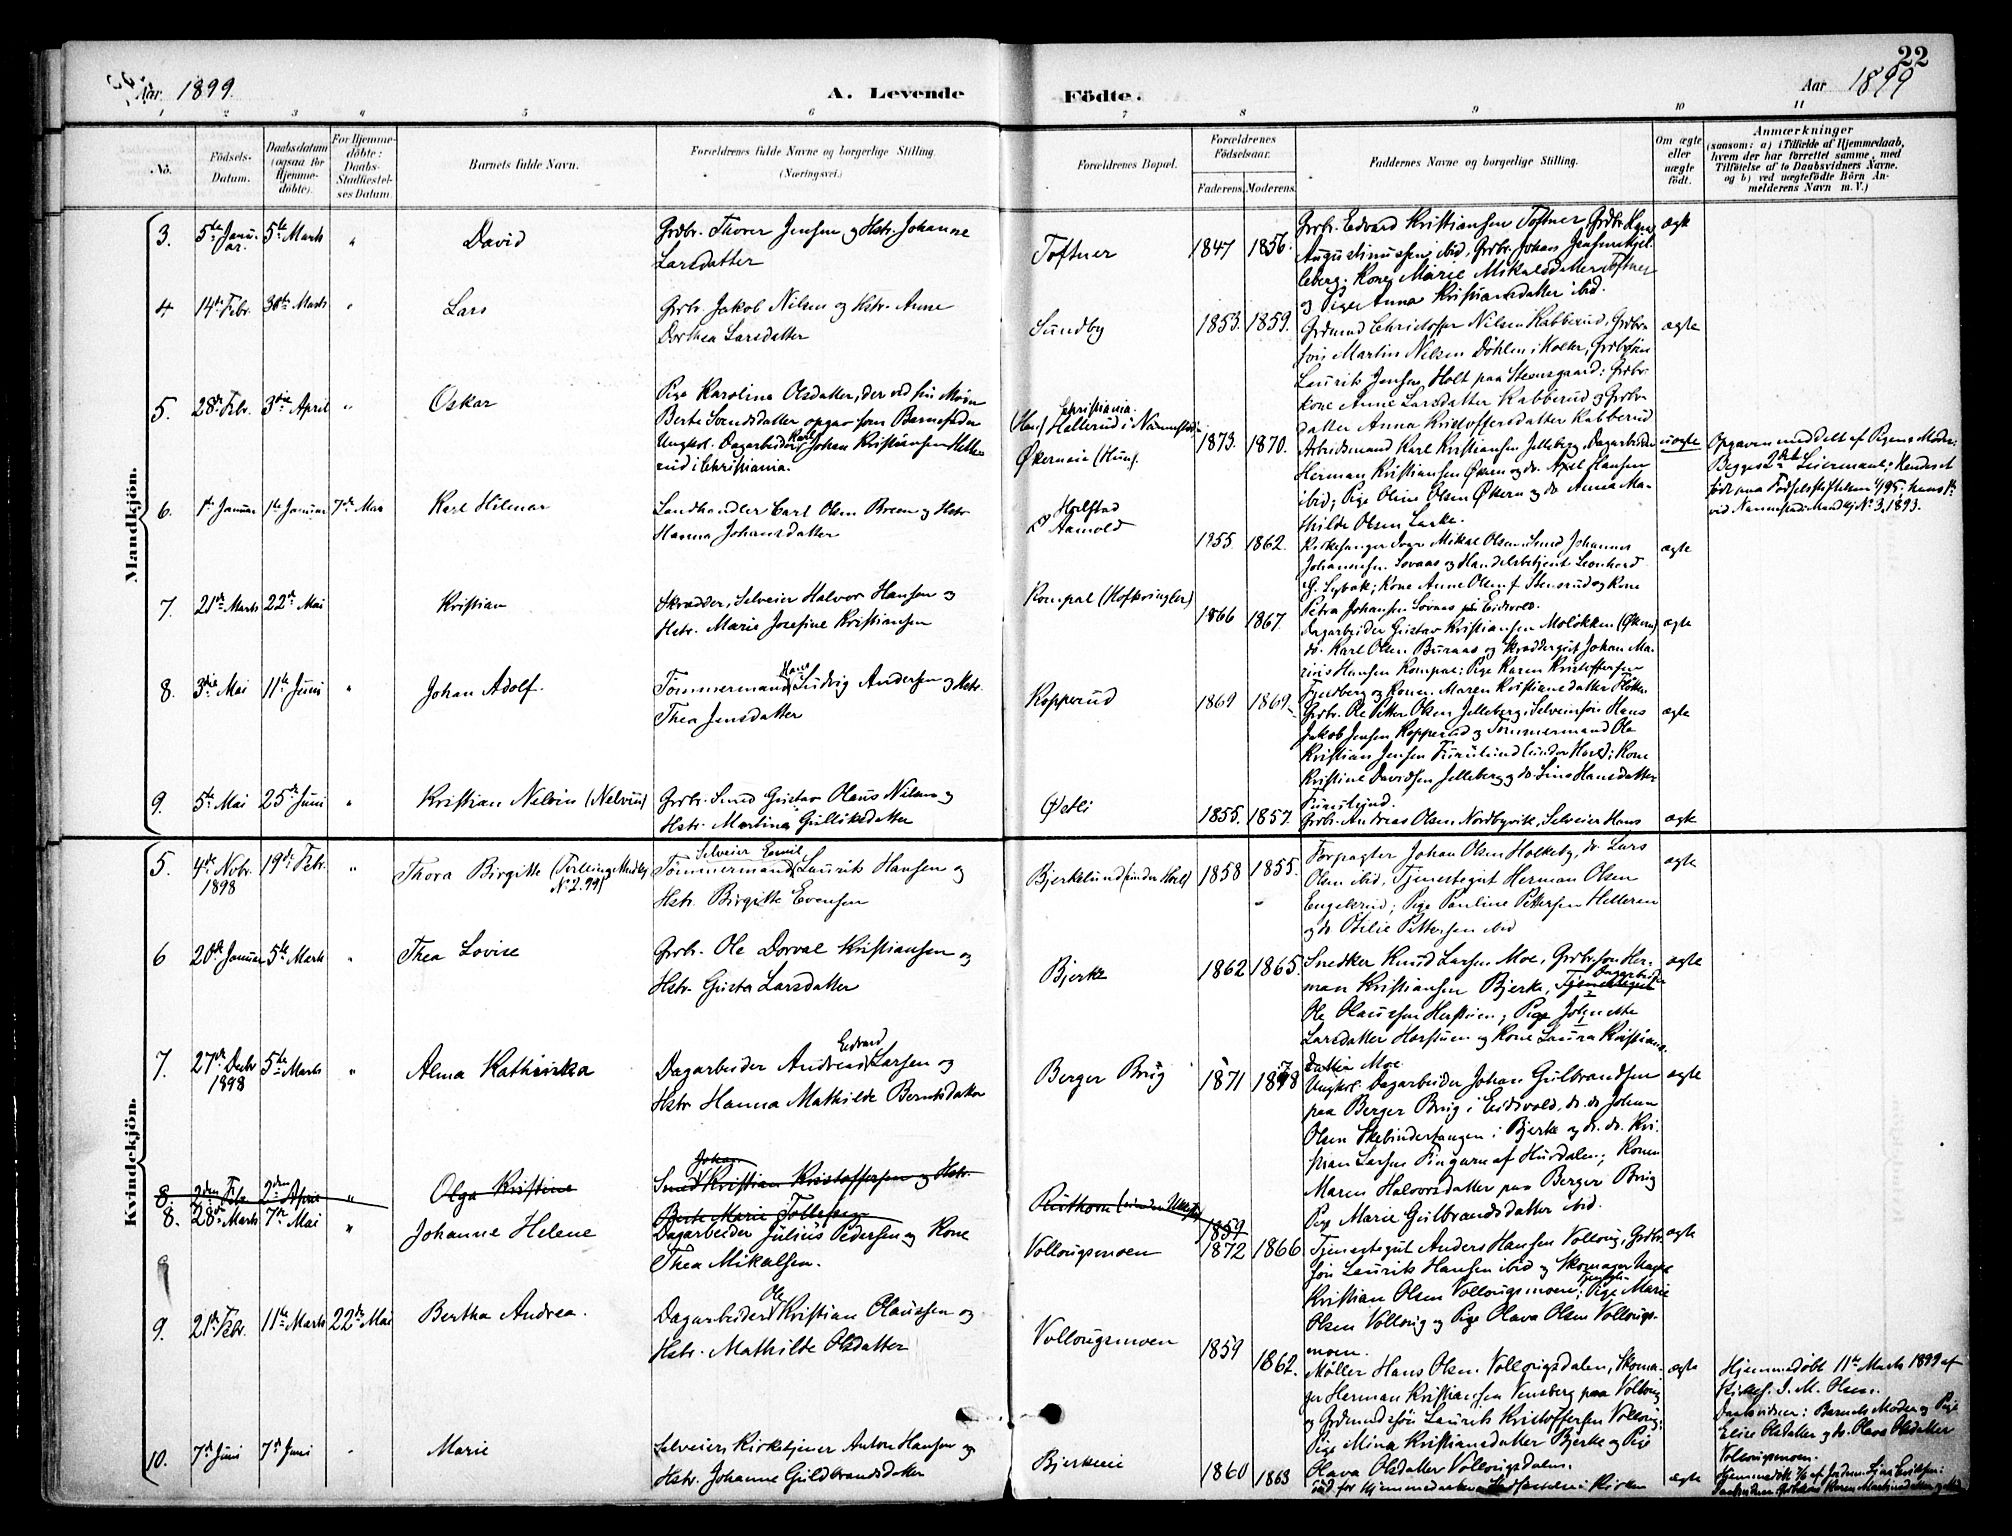 22
Aar 1899.
A. Levende
Födte.
Aar 1899
1 2 3 4 5 6 7 8 9 10 11
No.
Födsels-
Datum.
Daabsdatum
(ogsaa for
Hjemme-
döbte).
For Hjemme-
döbte:
Daabs-
Stadfæstel-
ses Datum.
Barnets fulde Navn.
Forældrenes fulde Navne og borgerlige Stilling.
(Næringsvei.)
Forældrenes Bopæl.
Forældrenes
Födselsaar.
Faderens. Moderens.
Faddernes Navne og borgerlige Stilling.
Om ægte
eller
uægte
födt.
Anmærkninger
(saasom: a) i Tilfælde af Hjemmedaab,
hvem der har forrettet samme, med
Tilföielse af to Daabsvidners Navne.
og b) ved uægtefödte Börn An-
melderens Navn m. V.)
Mandkjön.
3. 5te Janu-
ar. 5te Marts " David
Grdbr. Thorer Jensen og Hstr. Johanne
Larsdatter
Toftner 1847 1856.
Grdbr. Edvard Kristiansen Toftner, Grdbr.
Augustinussen ibid, Grdbr. Johans Jensen
leberg; Kone Marie Mikalsdatter Toftner
og Pige Anna Kristiansdatter ibid.
ægte
4 14de Febr. 30te Marts " Lars
Grdbr. Jakob Nilsen og Hstr. Anne
Dorthea Larsdatter
Sundby 1853. 1859.
Grdmand Christoffer Nilsen Kabberud, Grdbr.
søn Martin Nilsen Döhlen i Holter, Grdbrsøn
Laurits Jensen Holt paa Steensgaard; Grdbr.
kone Anne Larsdatter Kabberud og Grdbr.
datter Anna Kristoffersdatter Kabberud
ægte
5. 28de Febr. 3die April " Oskar
Pige Karolina Olsdatter, der ved sin Moder
Berte Svendsdatter opgav som Barnefader
Ungkarl. Dagarbeider Karl Johan Kristiansen Helle-
rud i Christiania.
Christiania
(Han) Hellerud i Nannestad
Økerneie (Hun). 1873. 1870.
Arbeidsmand Karl Kristiansen Jelleberg, Dagarbeider
Herman Kristiansen Økern og do. Axel Hansen
ibid; Pige Oline Olsen Økern og do Anna Ma-
thilde Olsen Lake.
uægte
Opgaven meddelt af Pigens Moder.
Begges 2det Leiermaal; Hendes 1st
födt paa Födselsstiftelsen 4/95; hans 1st
ved Nannestad Mandkj. No 3, 1893.
6. 1ste Januar 1ste Januar 7de Mai Karl Hilmar
Landhandler Carl Olsen Breen og Hstr.
Hanna Johansdatter
Holfstad
p. Aamold 1855. 1862.
Kirkesanger Inge Mikal Olsen, Smed Johannes
Johannessen Sovaas og Handelsbetjent Leonhard
G. Sybak; Kone Anne Olsen f. Stensrud og Kone
Petra Johansen Sovaas paa Eidsvold.
ægte
7. 21de Marts 22de Mai Kristian
Skrædder, Selveier Halvor Hansen og
Hstr. Marie Josefine Kristiansen
Rompal (Hofkvingler) 1866 1867
Dagarbeider Gustav Kristiansen Moløkken (Økern)
do. Karl Olsen Buraas og Skræddergut Johan Ma-
rius Hansen Rompal; Pige Karen Kristoffersen
Fjeldberg og Kone Maren Kristiansdatter
ægte
8. 3die Mai 11te Juni " Johan Adolf.
Tømmermand Hans Ludvig Andersen og Hstr.
Thea Jensdatter
Kopperud 1869 1869
Grdbr. Ole Petter Olsen Jelleberg, Selveiersøn Hans
Jakob Jensen Kopperud og Tömmermand Ole
Kristian Jensen Furulund (under Horl); Kone
Kristine Davidsen Jelleberg og do. Lina Hansdatter
Furulund.
ægte
9. 5te Mai 25de Juni " Kristian Nelvin (Nelvin)
Grdbr. Smed Gustav Olaus Nilsen og
Hstr. Martina Gulliksdatter
Østli 1855. 1857.
Grdbr. Andreas Olsen Nordbyvik, Selveier Hans
ægte
Kvindekjön.
5. 4de Novbr.
1898 19de Febr. " Thora Birgitte (Tvilling Mandkj.
No 2.99)
Selveier Emil
Tömmermand Laurits Hansen og
Hstr. Birgitte Evensen
Bjerkelund (under Horl) 1858 1855.
Forpagter Johan Olsen Holkeby, do. Lars
Olsen ibid, Tjenestegut Herman Olsen
Engelsrud; Pige Pauline Pettersen Helleren
og do Otilie Pettersen ibid
ægte
6 20de Januar 5te Marts " Thea Lovise
Grdbr. Ole Dorval Kristiansen og
Hstr. Gusta Larsdatter
Bjerke 1862 1865.
Snedker Knud Larsen Moe, Grdbrsøn Her-
man Kristiansen Bjerke, Tjenestegut Dagarbeider
Ole Olaussen Herstuen; Pige Johnette
Larsdatter Herstuen og Kone Laura Kristians-
datter Moe
ægte
7. 27de Decbr
1898 5te Marts " Alma Kathinka
Dagarbeider Andreas Edvard Larsen og
Hstr Hanna Mathilde Berntsdatter
Berger Brug 1871 1878
Ungkrl. Dagarbeider Johan Gulbrandsen
paa Berger Brug i Eidsvold, do. do. Johan
Olsen Skebindertangen i Bjerke og do. do. Kri-
stian Larsen Tingarn af Hurdalen; Konen
Maren Halvorsdatter paa Berger Brug
Pige Marie Gulbrandsdatter ibid.
ægte
8. 2den Febr. 2den April " Olga Kristine
Smed Johan Kristian Kristoffersen og Hstr.
Berte Marie Tollefsen
1859
8. 28de Marts 7de Mai " Johanne Helene
Dagarbeider Julius Pedersen og Kone
Thea Mikalsen.
Vollougsmoen 1872 1866
Tjenestegut Anders Hansen Vollaug, Grdbr.
søn Laurits Hansen ibid og Skomager
Kristian Olsen Vollougsmoen; Pige Marie
Olsen Vollaug og Pige Olava Olsen Vollougs-
moen.
ægte
9
9. 21de Febr. 11te Marts 22de Mai Bertha Andrea.
Dagarbeider Ole Kristian Olaussen og
Hstr. Mathilde Olsdatter
Vollougsmoen 1859 1862.
Møller Hans Olsen Vollougsdalen, Skoma-
ger Herman Kristiansen Vensberg paa Vollaug
og Grdmandssøn Laurits Kristoffersen Vollaug;
Pige Mina Kristiansdatter Bjerke og Pige
Olava Olsdatter Vollougsdalen.
ægte
Hjemmedöbt 11te Marts 1899 af
Kirkes. I. M. Olsen.
Daabsvidner: Barnets Moder og Pige
Elise Olsdatter og do. Olava Olsdatter
Vollougsmoen.
10. 7de Juni 7de Juni " Marie
Selveier, Kirketjener Anton Hansen og
Hstr. Johanne Guldbrandsdatter
Bjerkeeie 1860 1863
ægte